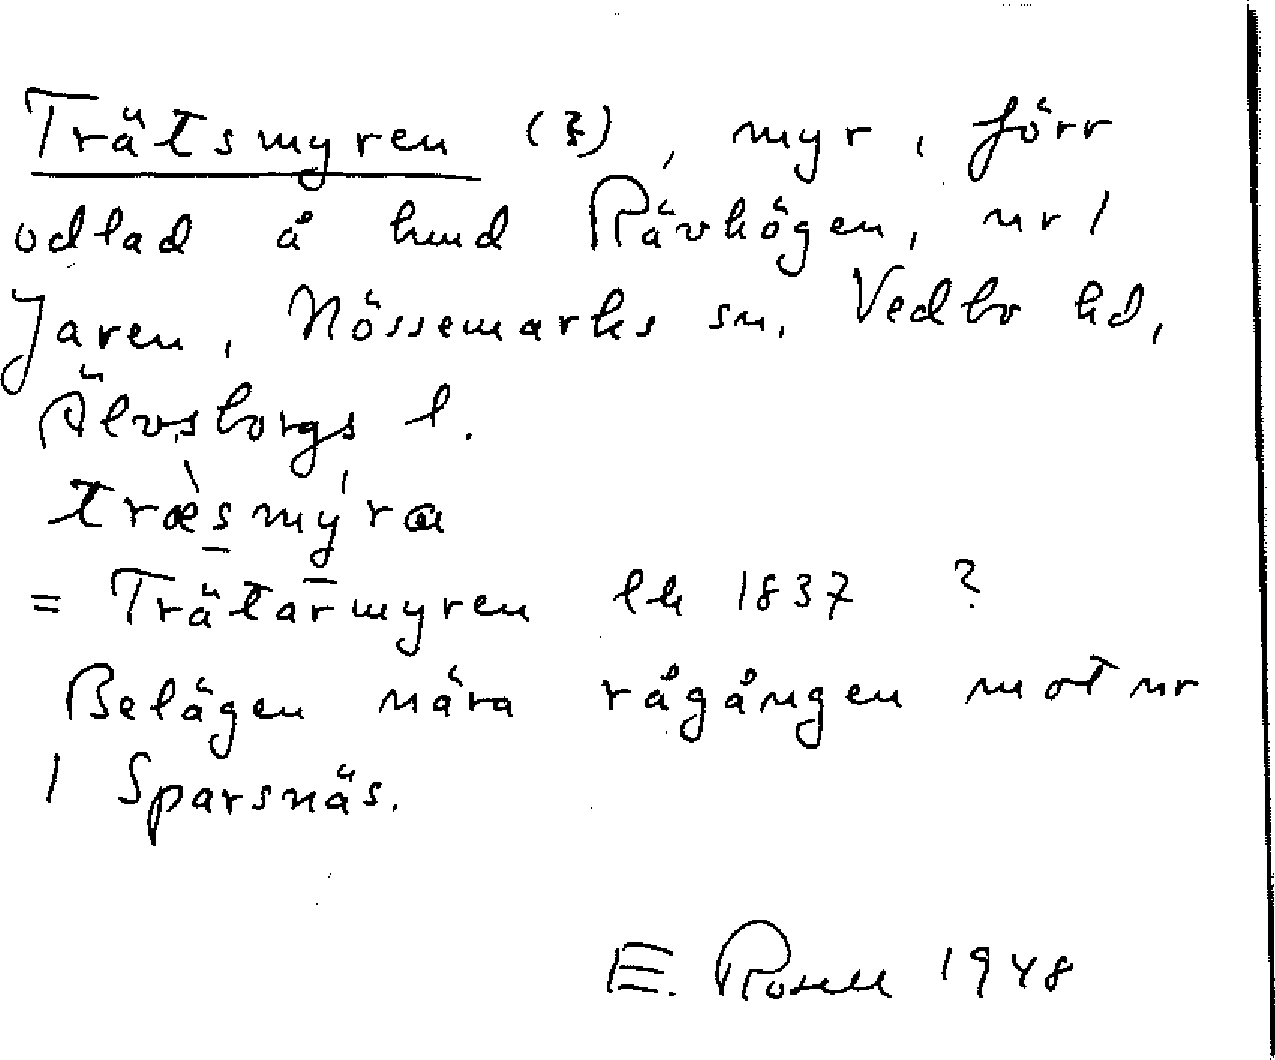 Trätsmyren (ξ), myr, förr
odlad å hmd Rävhögen, nr 1
Jaren, Nössemarks sn. Vedbo hd,
Älvsborgs l.
træ̀smýra
= Trätarmyren lk 1837 ?
Belägen nära rågången mot nr
1 Sparsnäs.
E. Rosell 1948